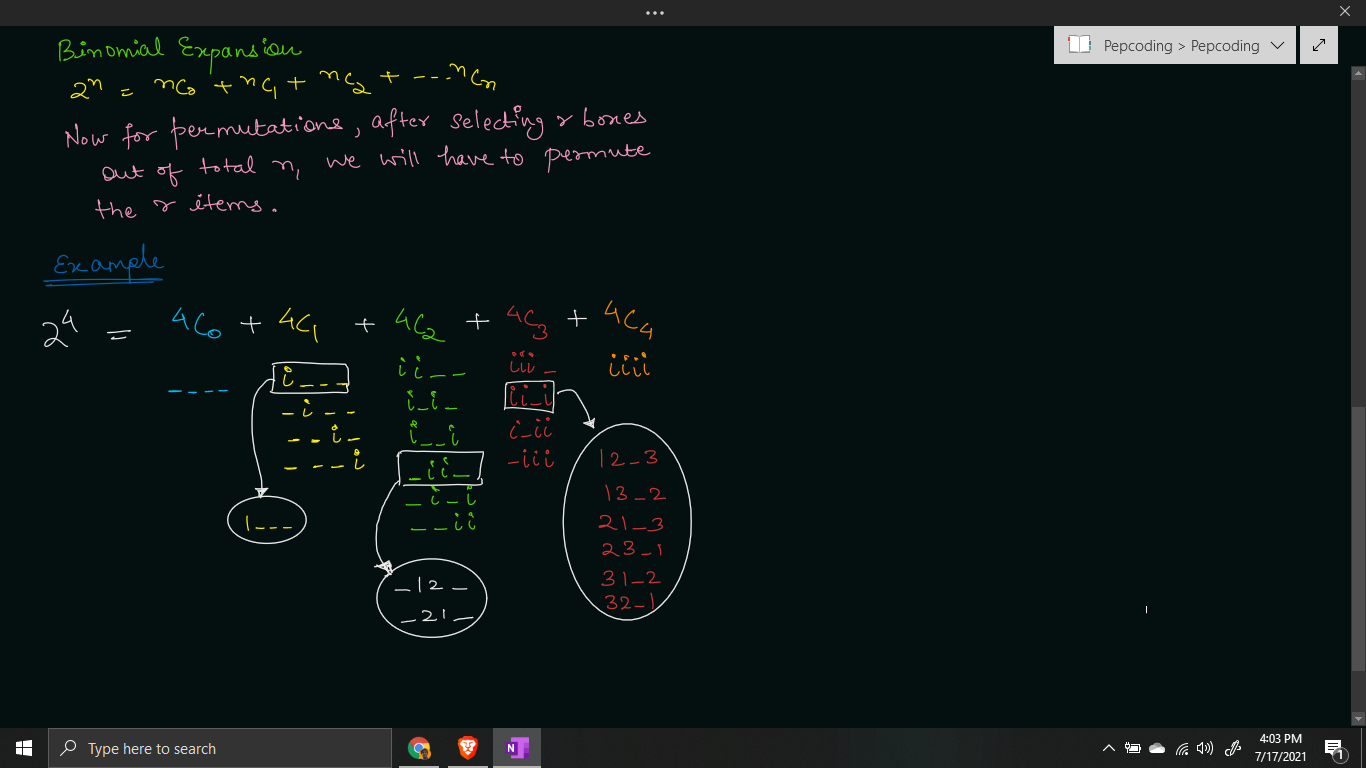 Pepcoding > Pepcoding
Binomial Expansion
2ⁿ = nC₀ + nC₁ + nC₂ + ---- nCₙ
Now for permutations, after selecting r boxes
out of total n, we will have to permute
the r items.
Example
2⁴ = 4C₀ + 4C₁ + 4C₂ + 4C₃ + 4C₄
_ _ _ _
i _ _ _
_ i _ _
_ _ i _
_ _ _ i
1 _ _ _
i i _ _
i _ i _
i _ _ i
_ i i _
_ i _ i
_ _ i i
_ 1 2 _
_ 2 1 _
i i i _
i i _ i
i _ i i
_ i i i
1 2 _ 3
1 3 _ 2
2 1 _ 3
2 3 _ 1
3 1 _ 2
3 2 _ 1
i i i i
Type here to search
4:03 PM
7/17/2021
1